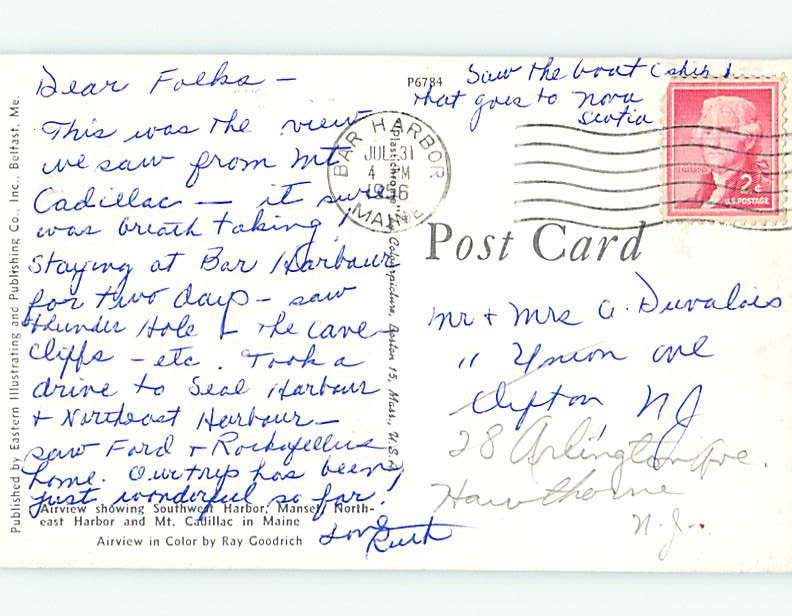 Dear Folks —
This was the view
we saw from Mt
Cadillac — it sure
was breath taking!
Staying at Bar Harbour
for two days — saw
thunder Hole + the cave
cliffs — etc. Took a
drive to Seal Harbour
+ Northeast Harbour —
saw Ford + Rockafellus
home. Our trip has been
just wonderful so far.
Love
Ruth
Saw the boat (ship)
that goes to Nova
Scotia
P6784
BAR HARBOR
JUL 31
4 M
1956
MAINE
2¢
U.S. POSTAGE
Post Card
Mr + Mrs A. Duvalois
" Union ave
Clifton, NJ
28 Arlington Ave.
Hawthorne
N.J.
Published by Eastern Illustrating and Publishing Co., Inc., Belfast, Me.
Plastichrome Colourpicture, Boston 15, Mass., U.S.A.
Airview showing Southwest Harbor, Manset, North-
east Harbor and Mt. Cadillac in Maine
Airview in Color by Ray Goodrich